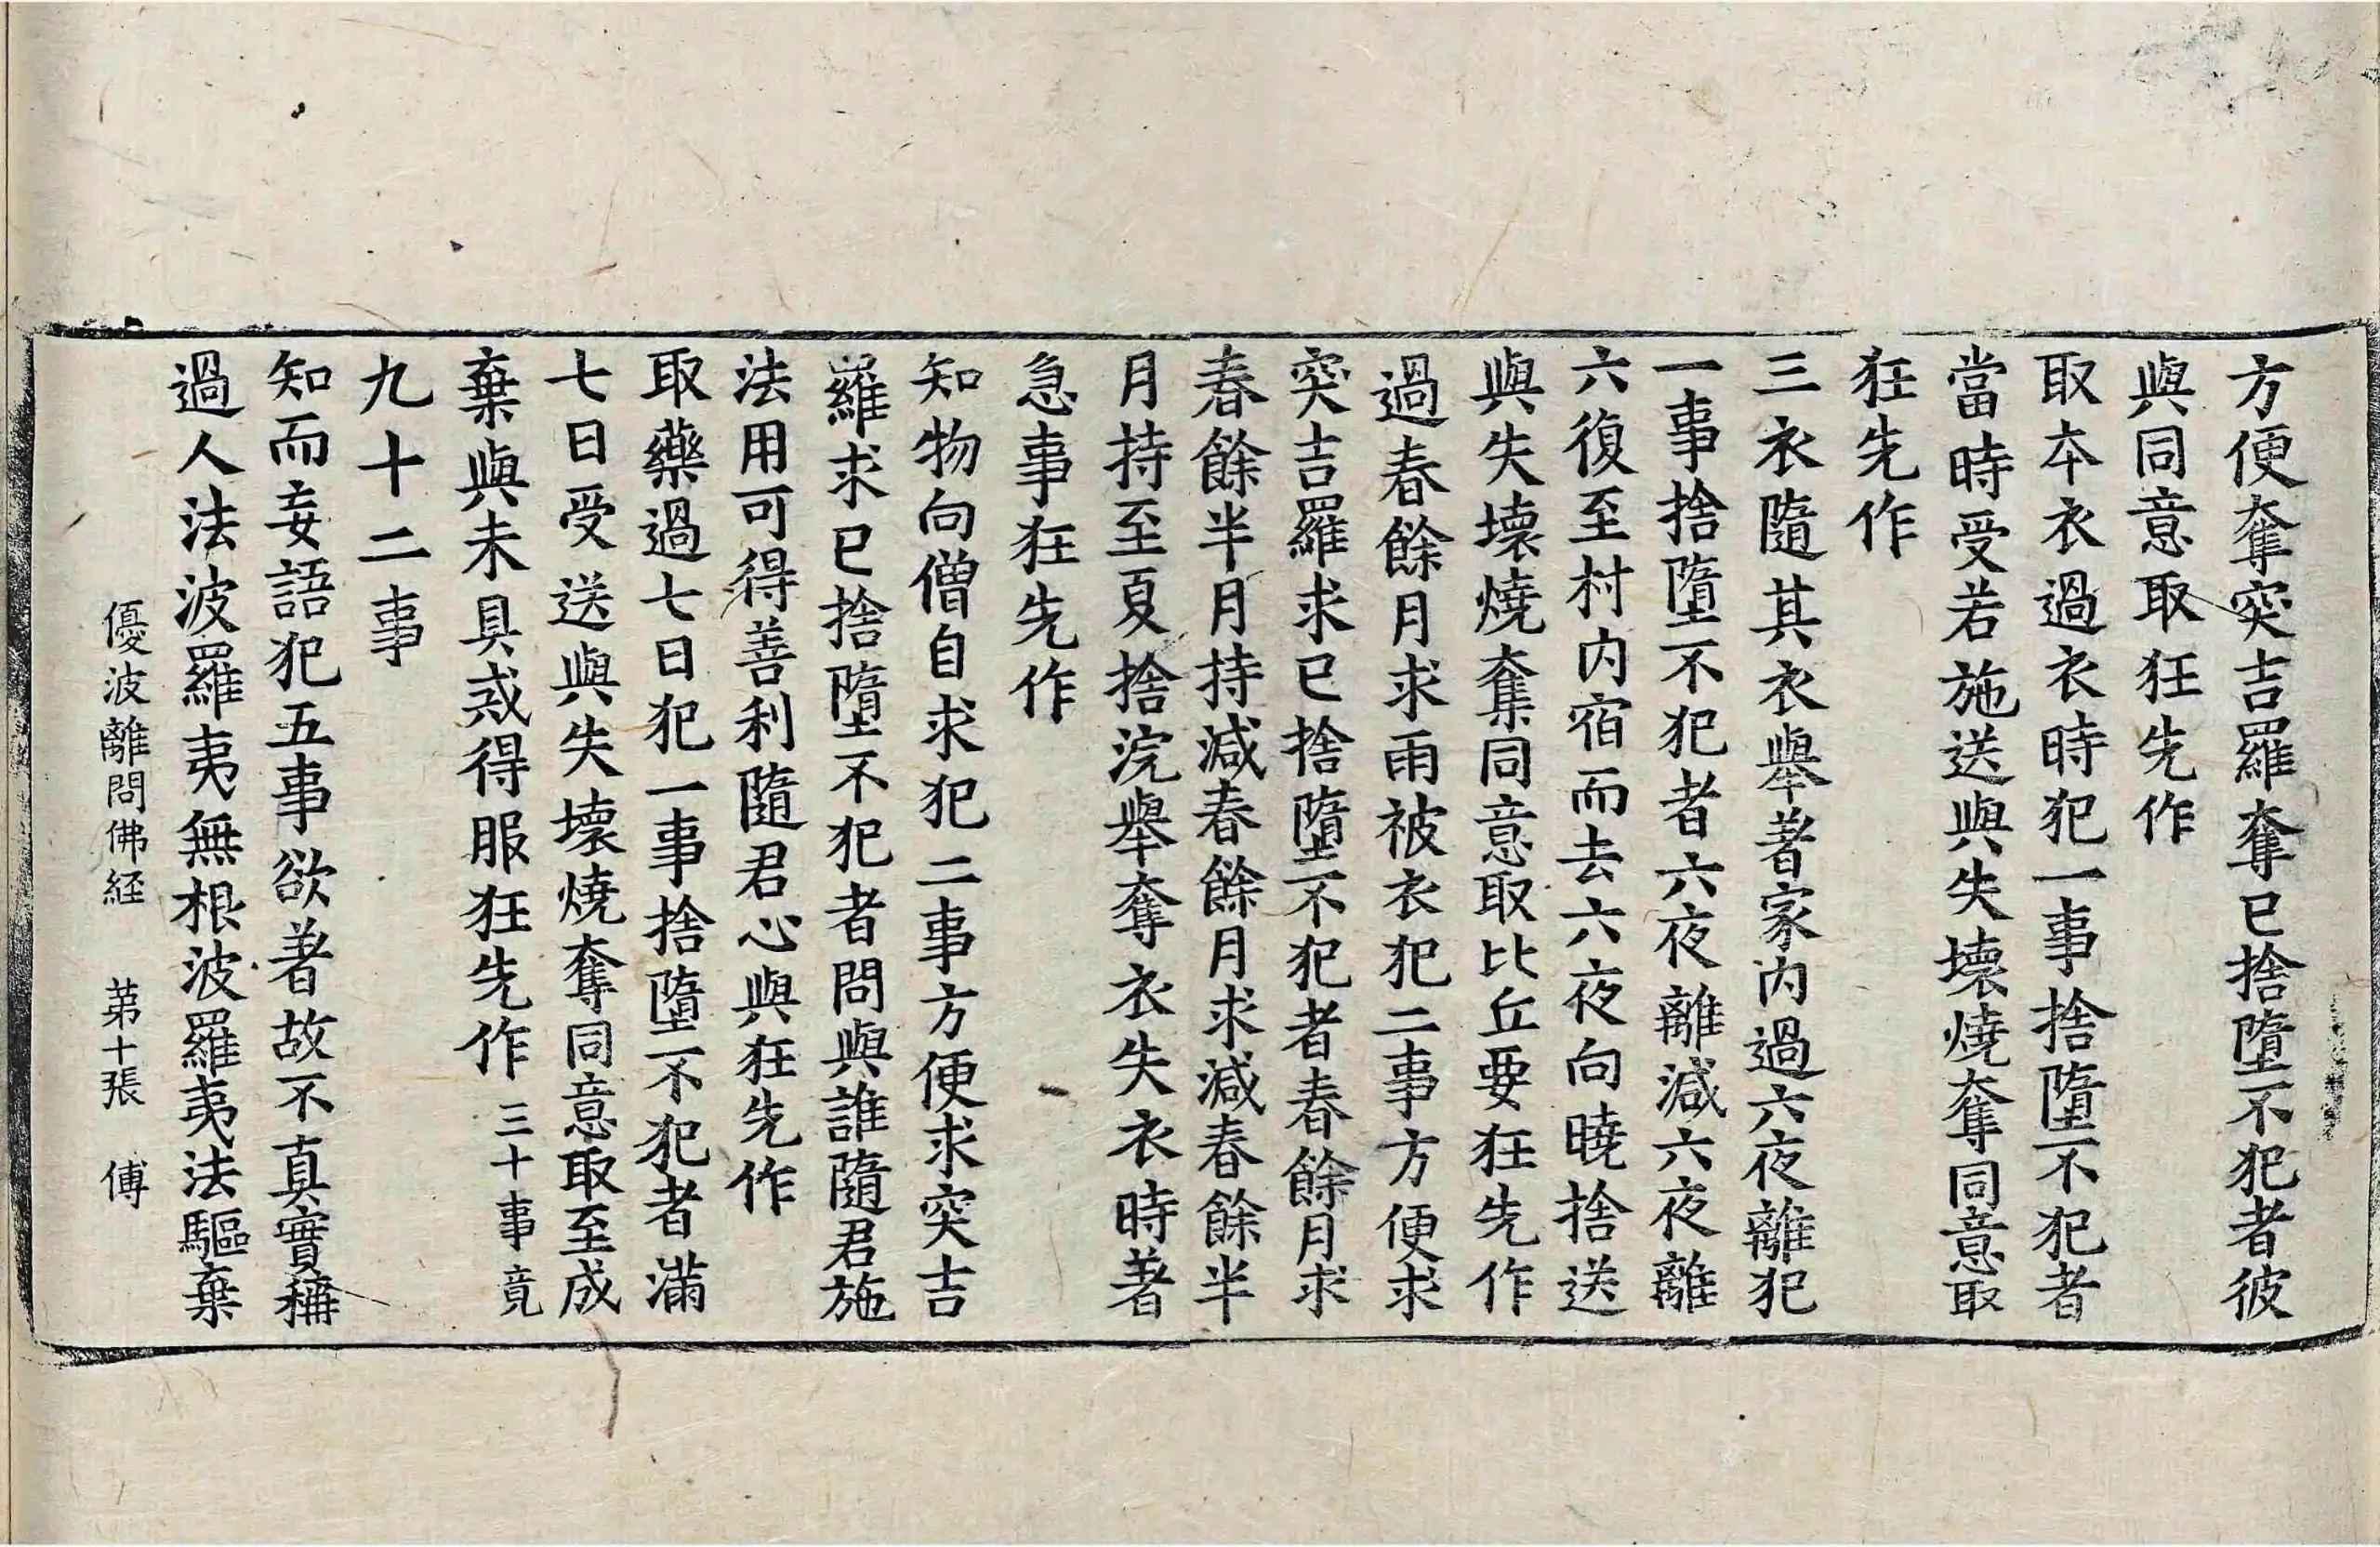 方便奪突吉羅奪已捨墮不犯者彼
與同意取狂先作
取本衣過衣時犯一事捨墮不犯者
當時受若施送與失壞燒奪同意取
狂先作
三衣隨其衣舉著家內過六夜離犯
一事捨墮不犯者六夜離減六夜離
六復至村內宿而去六夜向曉捨送
與失壞燒奪同意取比丘要狂先作
過春餘月求雨被衣犯二事方便求
突吉羅求已捨墮不犯者春餘月求
春餘半月持減春餘月求減春餘半
月持至夏捨浣舉奪衣失衣時著
急事狂先作
知物向僧自求犯二事方便求突吉
羅求已捨墮不犯者問與誰隨君施
法用可得善利隨君心與狂先作
取藥過七日犯一事捨墮不犯者滿
七日受送與失壞燒奪同意取至成
棄與未具戒得服狂先作 三十事竟
九十二事
知而妄語犯五事欲著故不真實稱
過人法波羅夷無根波羅夷法驅棄
優波離問佛経 苐十張 傅